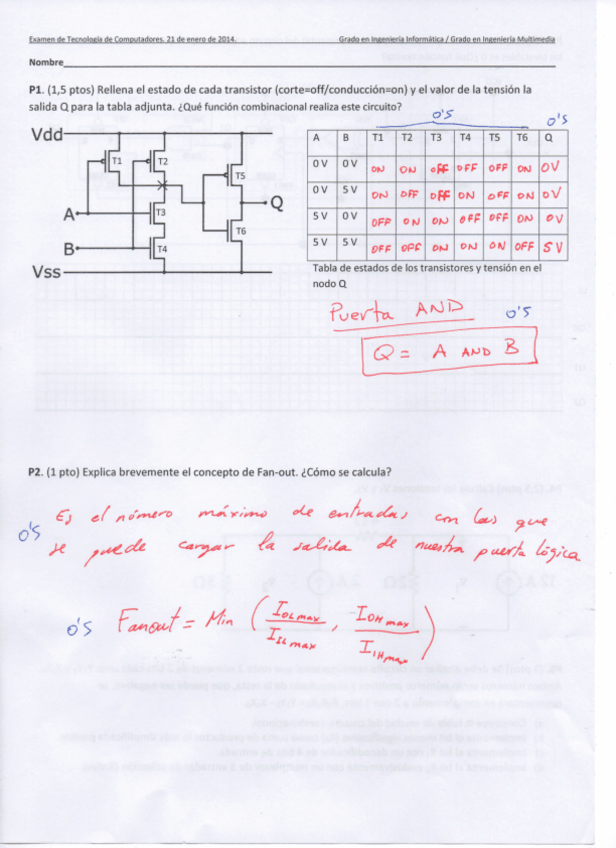 Examen de Tecnología de Computadores. 21 de enero de 2014. Grado en Ingeniería Informática / Grado en Ingeniería Multimedia
Nombre
P1. (1,5 ptos) Rellena el estado de cada transistor (corte=off/conducción=on) y el valor de la tensión la
salida Q para la tabla adjunta. ¿Qué función combinacional realiza este circuito?
0'5 0'5
Vdd
T1 T2 T5
A T3 Q
T6
B T4
Vss
A B T1 T2 T3 T4 T5 T6 Q
0 V 0 V ON ON OFF OFF OFF ON 0V
0 V 5 V ON OFF OFF ON OFF ON 0V
5 V 0 V OFF ON ON OFF OFF ON 0V
5 V 5 V OFF OFF ON ON ON OFF 5V
Tabla de estados de los transistores y tensión en el
nodo Q
Puerta AND 0'5
Q = A AND B
P2. (1 pto) Explica brevemente el concepto de Fan-out. ¿Cómo se calcula?
Es el número máximo de entradas con las que
0'5 se puede cargar la salida de nuestra puerta lógica
0'5 Fanout = Min ( IOL max / IIL max , -IOH max / IIH max )